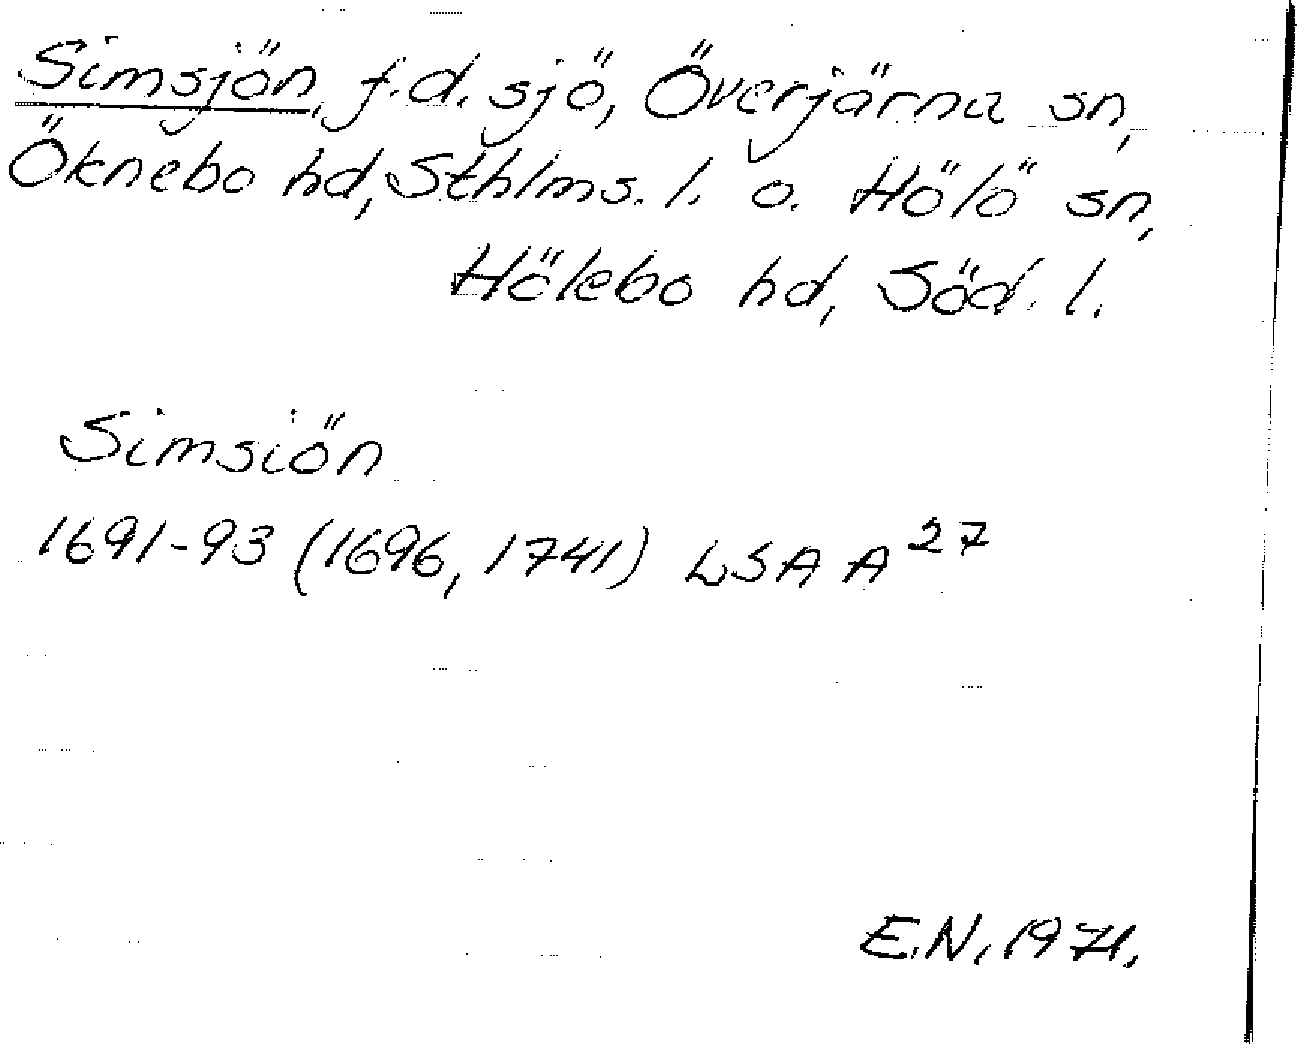 Simsjön, f.d. sjö, Överjärna sn,
Öknebo hd, Sthlms. l. o. Hölö sn,
Hölebo hd, Söd. l.
Simsiön
1691-93 (1696, 1741) LSA A 27
E.N. 1971.